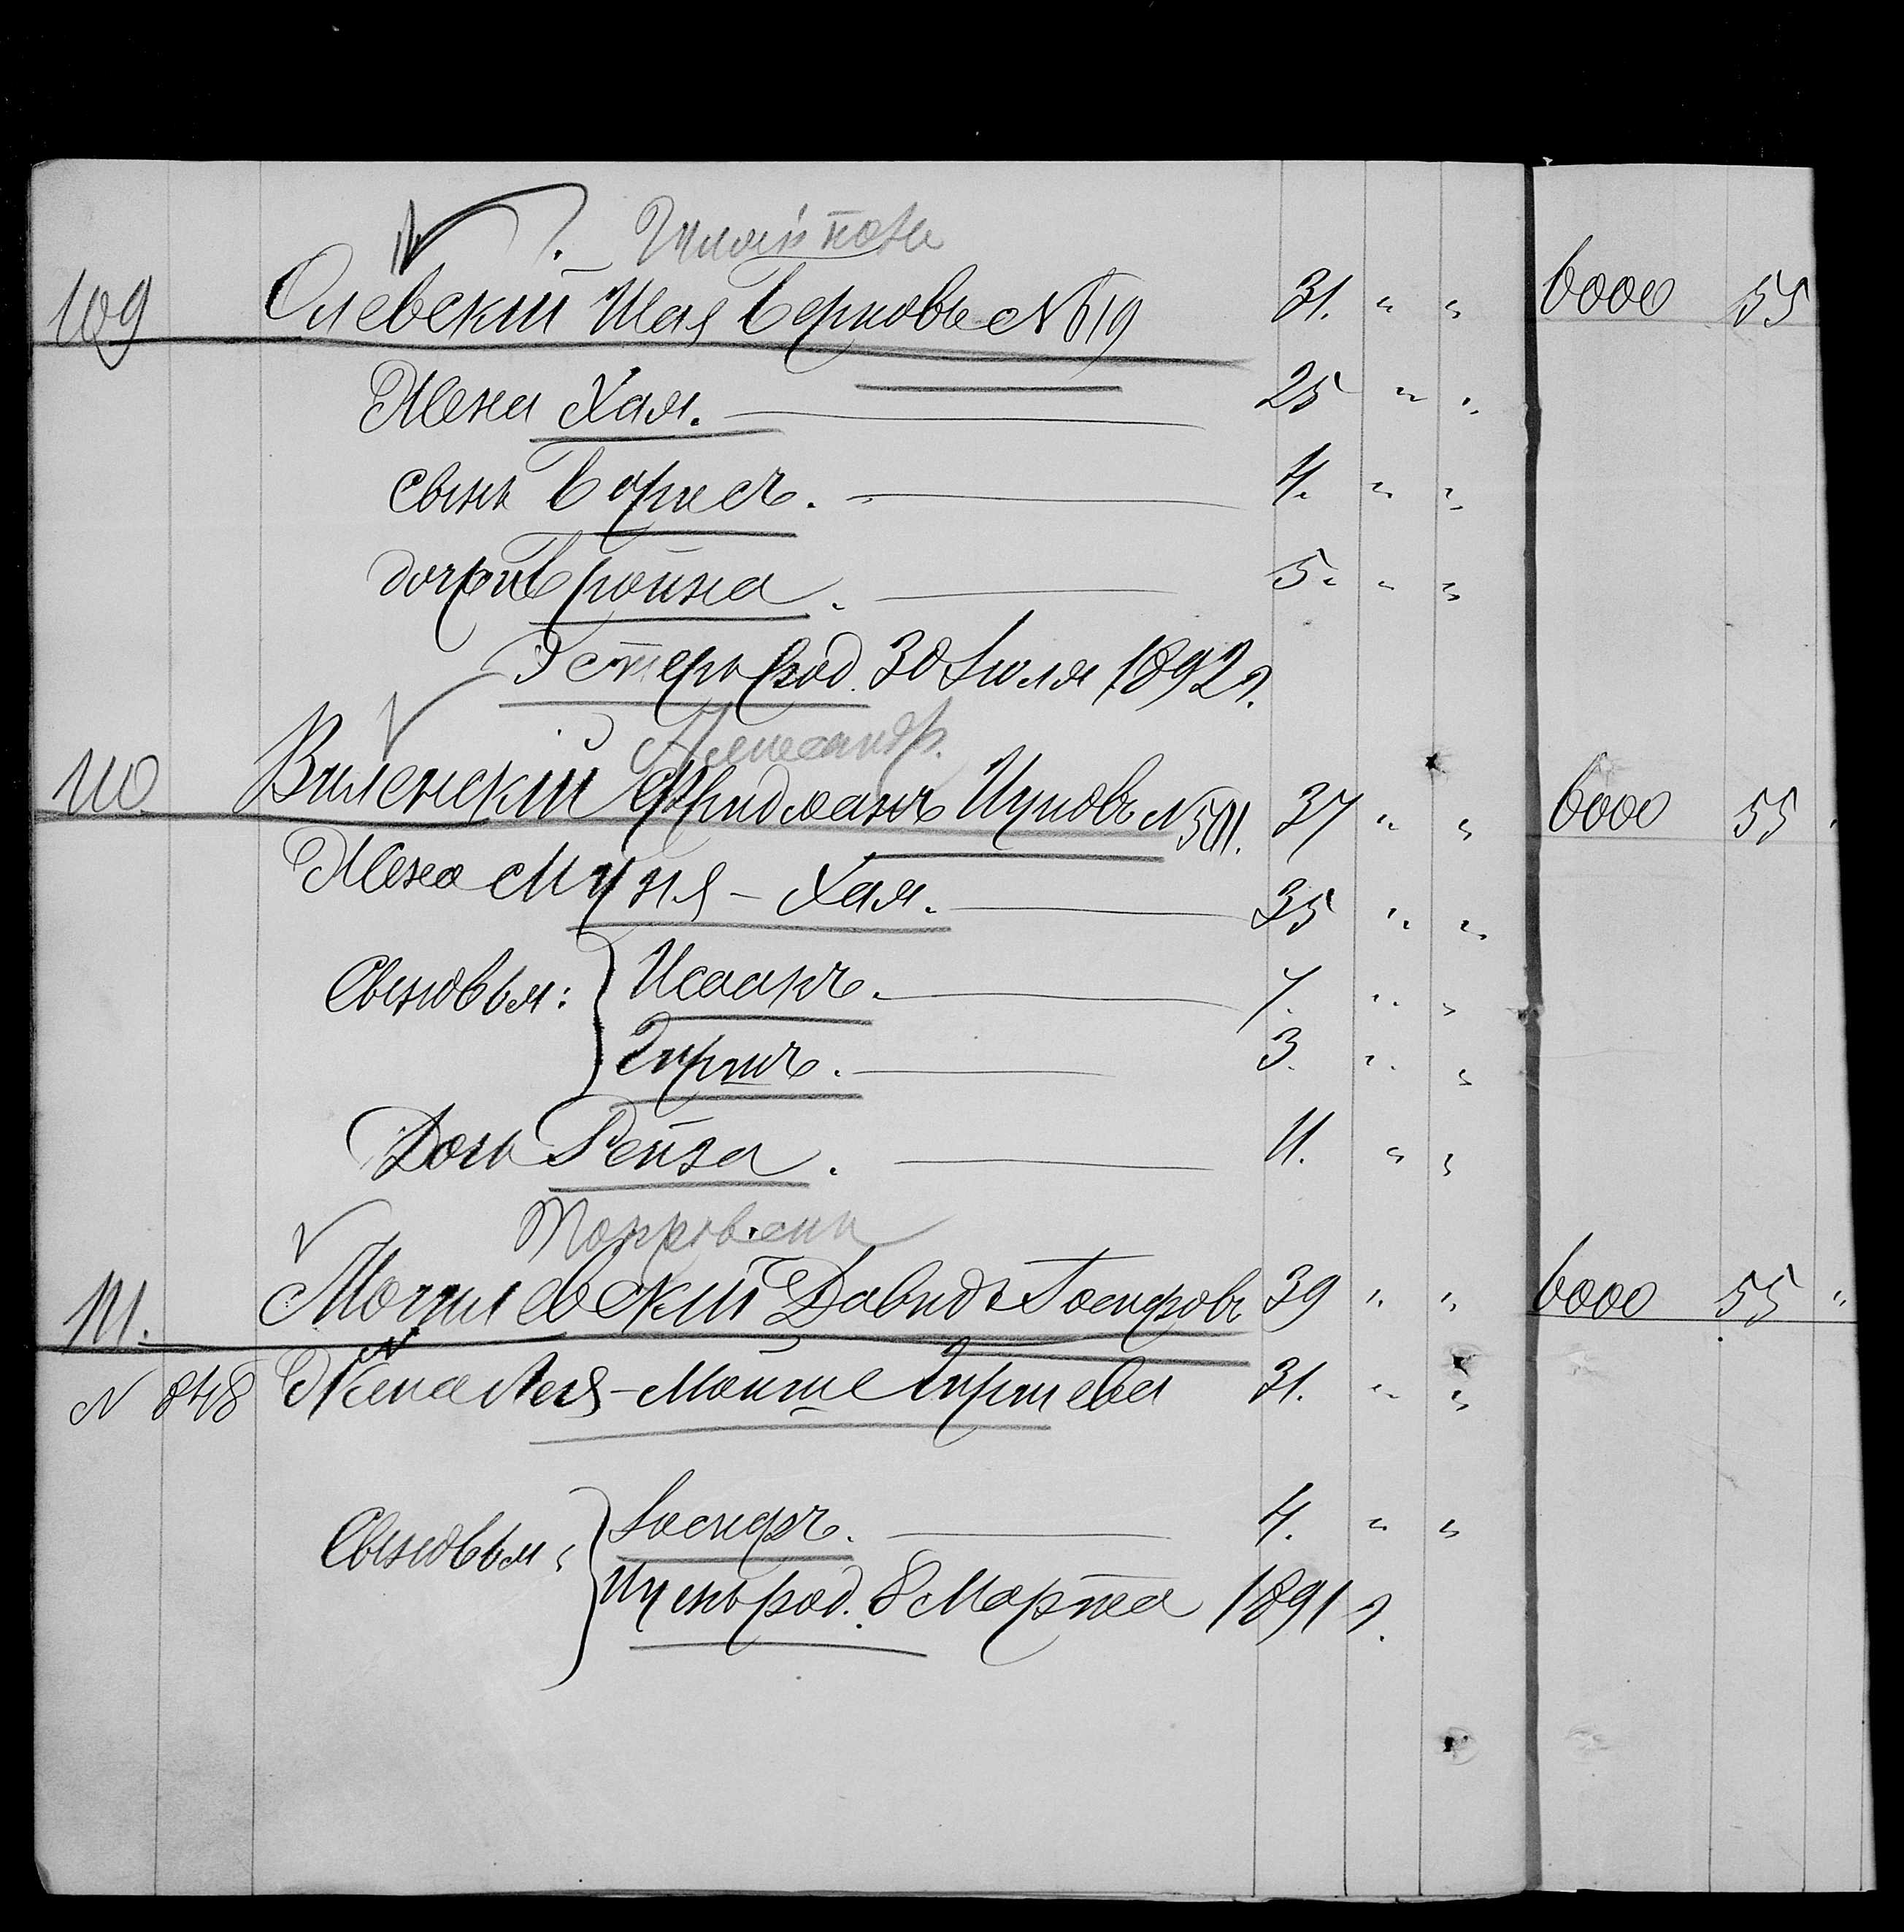 109 Олевскій Шая Берковъ № 619 31. " " 6000 55
Жена Хая. 25 " "
сынъ Борисъ. 4. " "
дочери Бройна. 5. " "
Эстеръ род. 30 Іюля 1892 г.
Александр.
110 Виленскій Фридманъ Ицковъ № 501. 37 " " 6000 55 "
Жена Муня-Хая. 35 " "
Сыновья: Исаакъ. 7. " "
Гиршъ. 3. " "
Дочь Рейза. 11. " "
111. Могилевскій Давидъ Іосифовъ 39 " " 6000 55 "
№ 848 Жена Лея-Моише Гиршева 31. " "
Сыновья: Іосифъ. 4. " "
Ицекъ род. 8 Марта 1891 г.